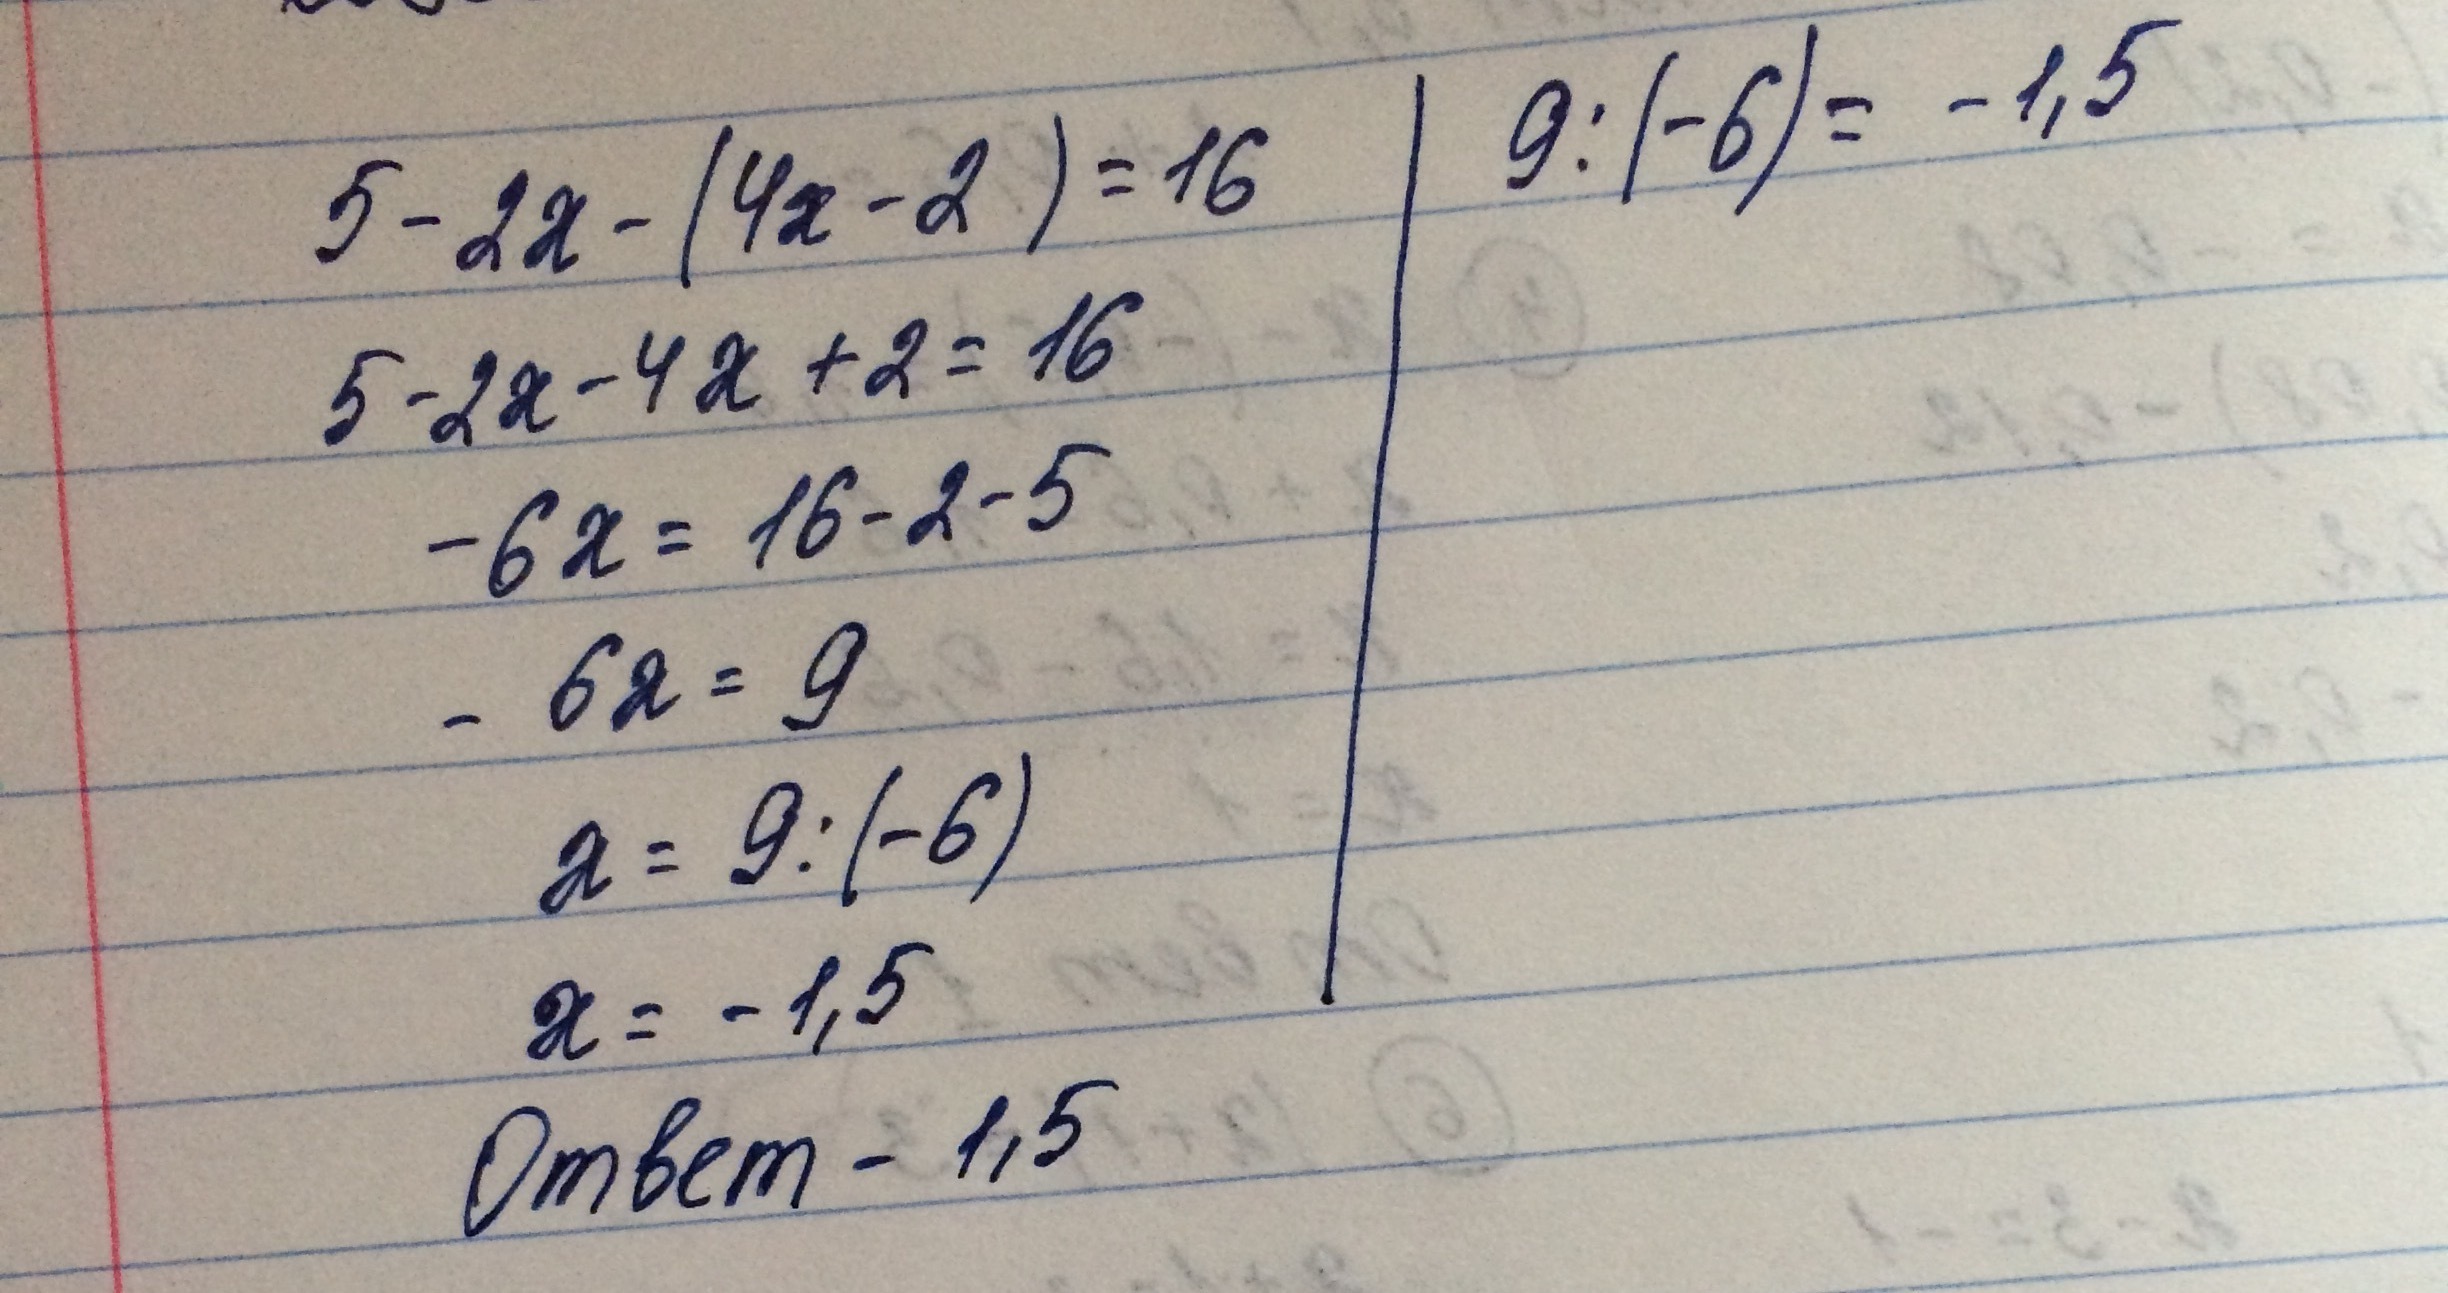 5 - 2x - (4x - 2) = 16
5 - 2x - 4x + 2 = 16
- 6x = 16 - 2 - 5
- 6x = 9
x = 9 : (-6)
x = - 1,5
Ответ - 1,5
9 : (-6) = - 1,5